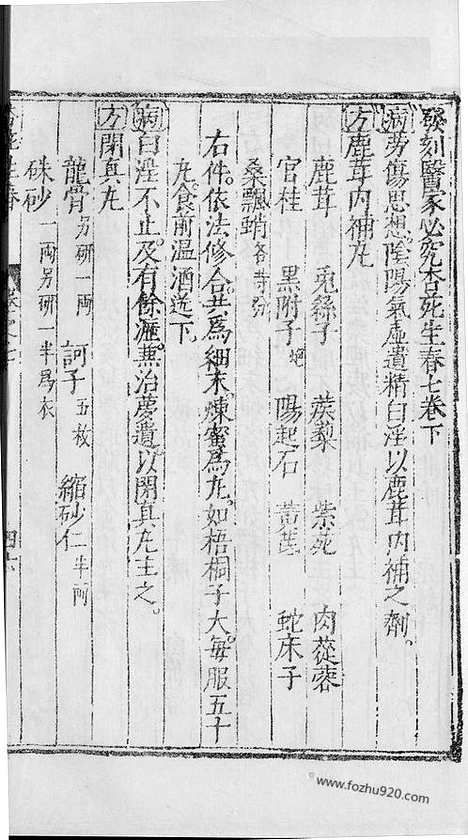 發刻醫家必究杏苑生春七卷下
病勞傷思想陰陽氣虛遺精白淫以鹿茸內補之劑。
方鹿茸內補丸
鹿茸 兎絲子 蒺藜 紫苑 肉蓯蓉
官桂 黑附子炮 陽起石 黃芪 蛇床子
桑飄蛸各等分
右件。依法修合共爲細末煉蜜爲丸。如梧桐子大。每服五十
丸食前温酒送下。
病白淫不止。及有餘瀝。兼治夢遺。以閉真丸主之。
方閉真丸
龍骨另研一兩 訶子五枚 縮砂仁半兩
硃砂一兩另研一半爲衣
www.fozhu920.com